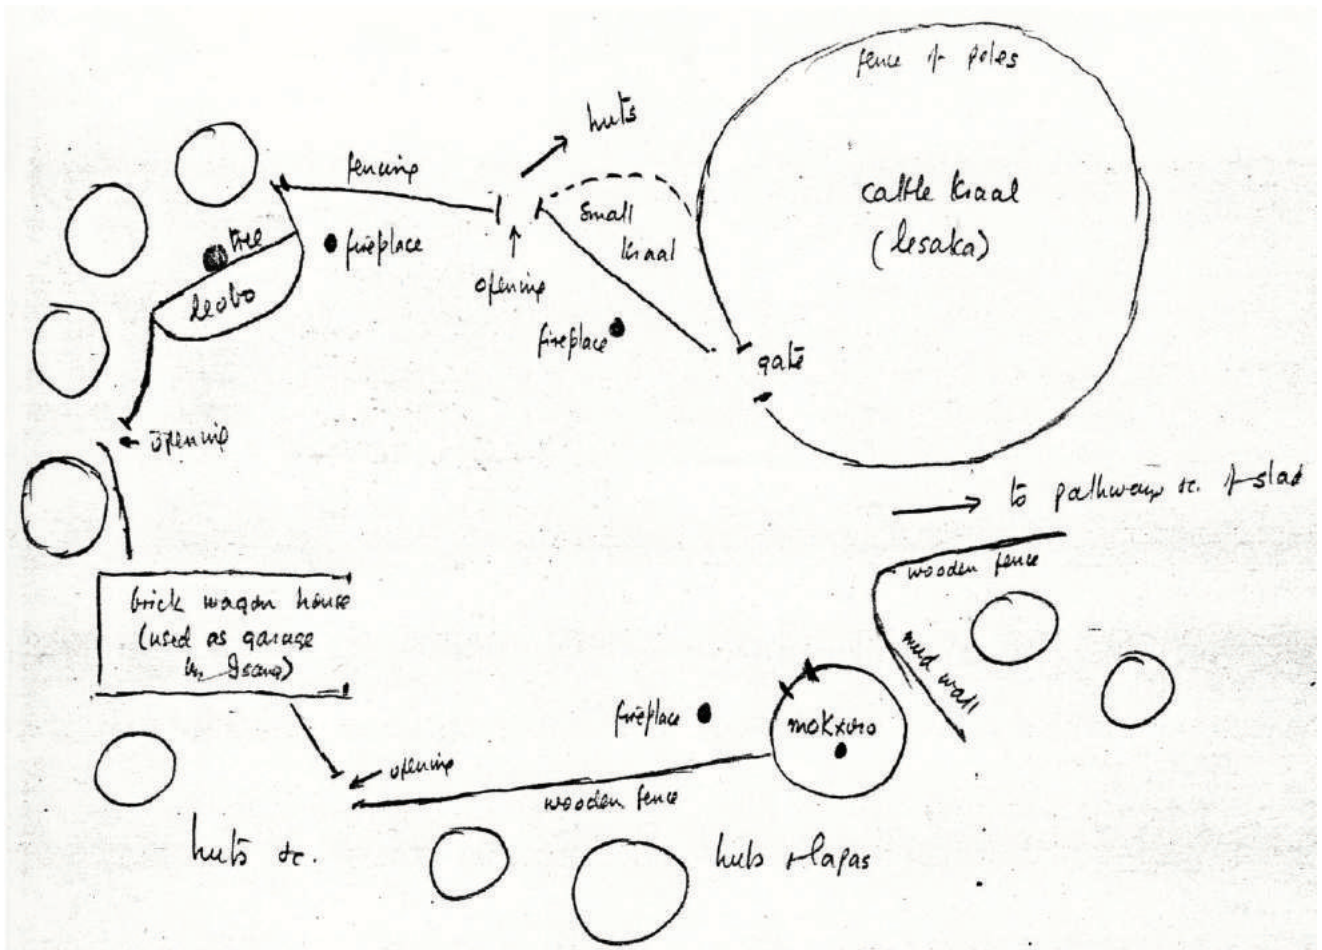 fence of poles
huts
fencing
cattle kraal
(lesaka)
small
kraal
tree
fireplace
opening
leobo
fireplace
gate
opening
to pathways &c. of stad
wooden fence
brick wagon house
(used as garage
mud wall
fireplace
mokxoro
opening
wooden fence
huts &c.
huts & lapas